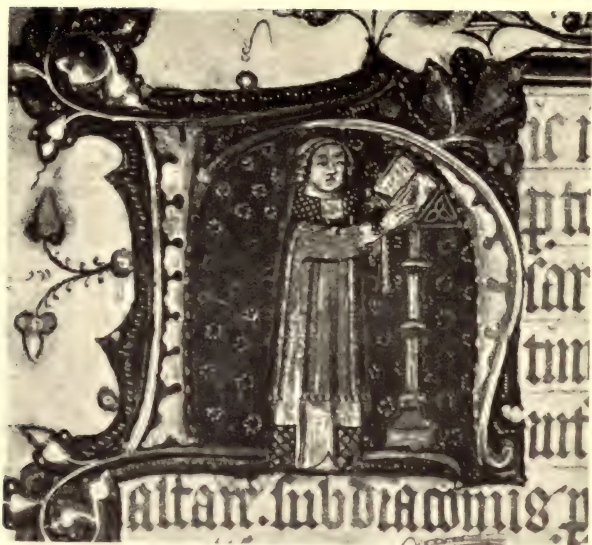 hic
sar
tun
ant
altari. subdiaconus p